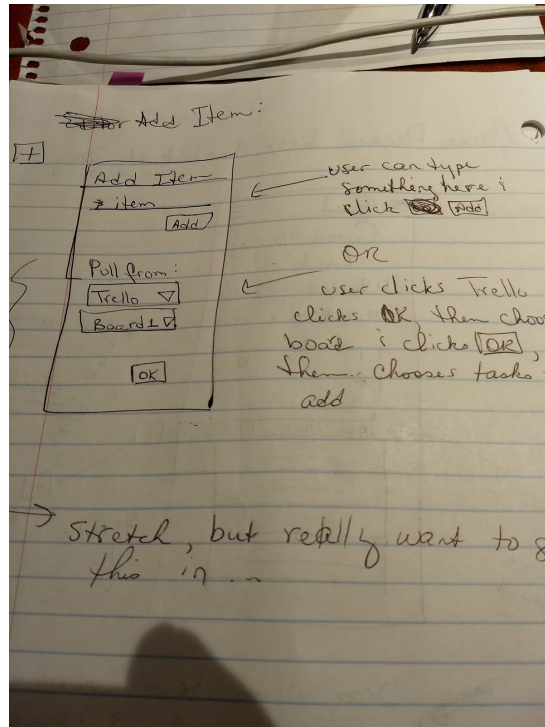 Add Item:
+
Add Item
item
Add
Pull from:
Trello
Board1
OK
user can type
something here &
click Add
OR
user clicks Trello
clicks OK, then choos
board & clicks OK,
then chooses tasks
add
Stretch, but really want to
this in...